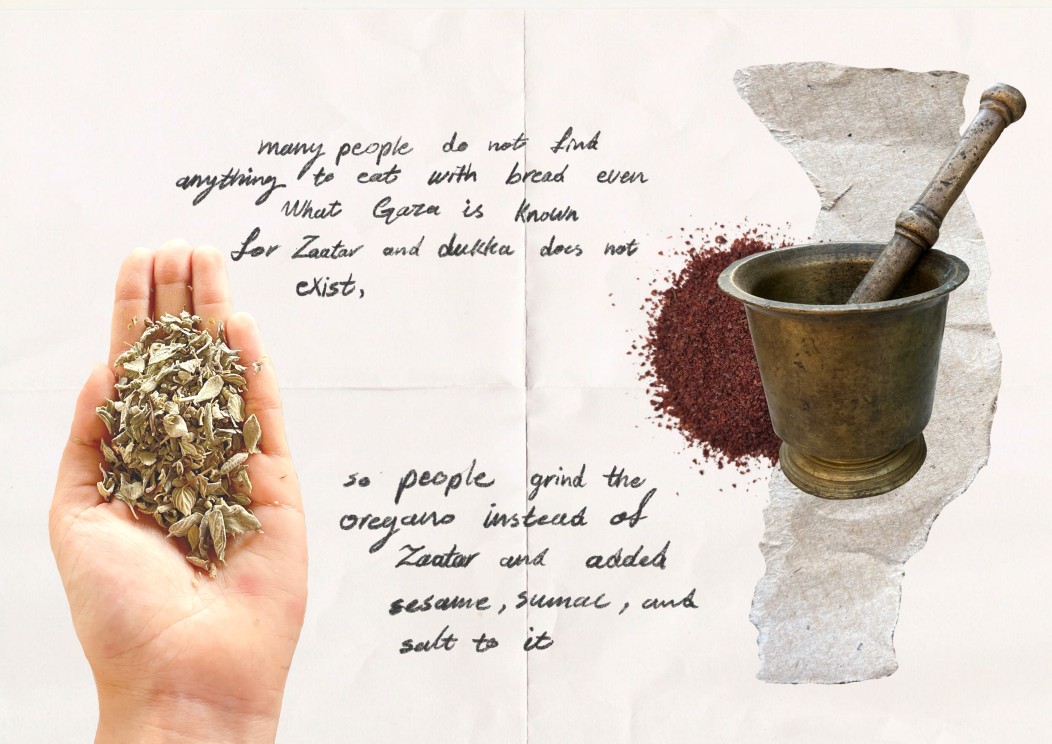 many people do not find
anything to eat with bread even
What Gaza is known
for Zaatar and dukka does not
exist,
so people grind the
oregano instead of
Zaatar and added
sesame, sumac, and
salt to it